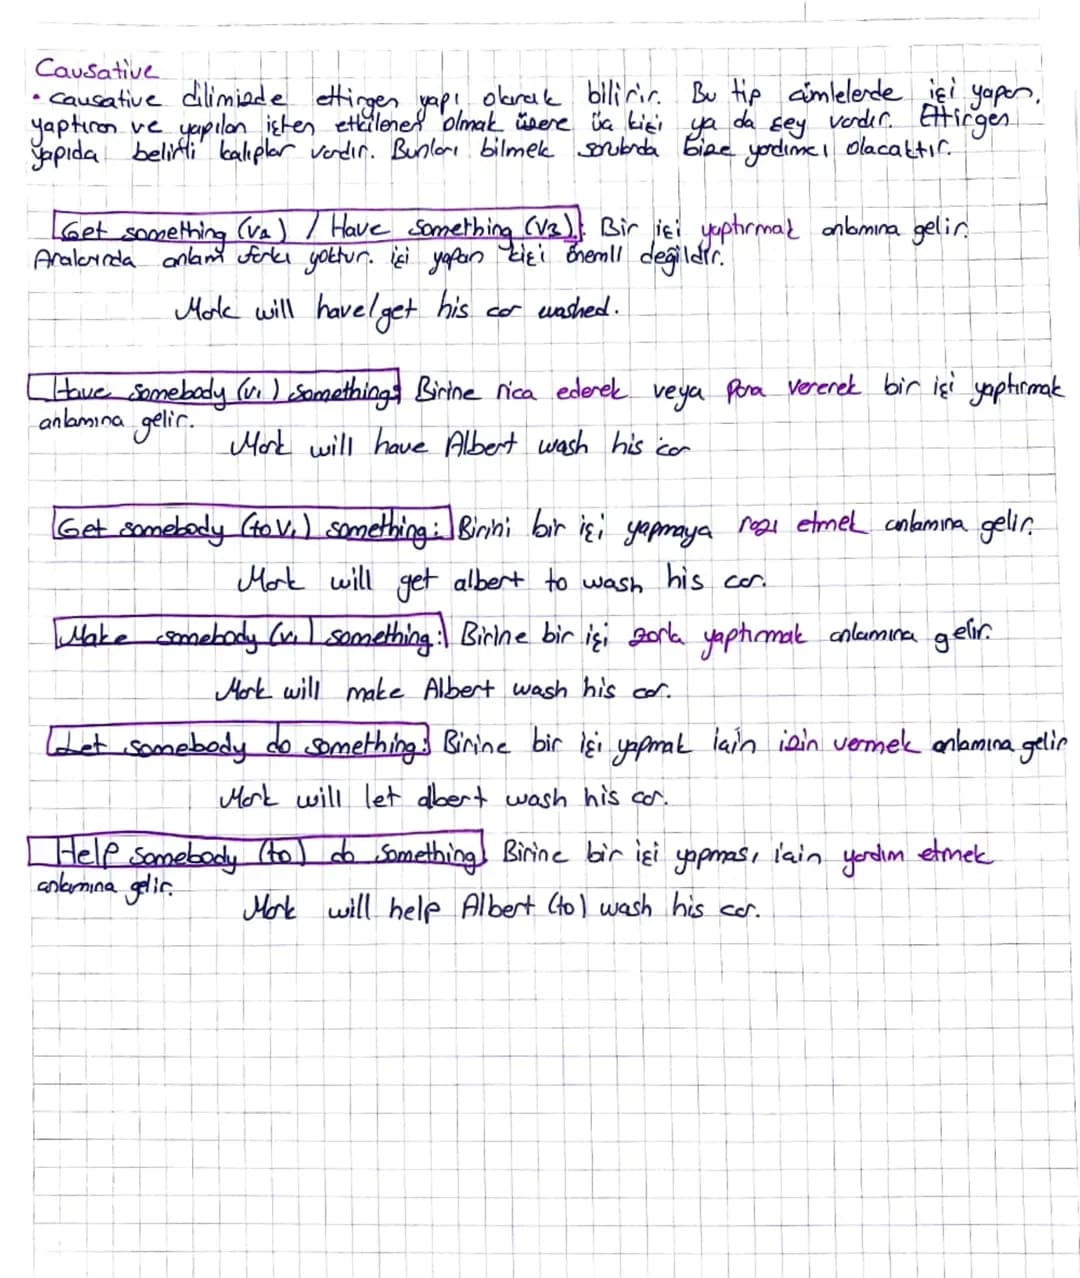 Causative
• causative dilimizde ettirgen yapı olarak bilinir. Bu tip cümlelerde işi yapan,
yaptıran ve yapılan işten etkilenen olmak üzere üç kişi ya da şey vardır. Ettirgen
yapıda belirli kalıplar vardır. Bunları bilmek sorularda bize yardımcı olacaktır.
Get something (V3) / Have something (V3): Bir işi yaptırmak anlamına gelir.
Aralarında anlam farkı yoktur. işi yapan kişi önemli değildir.
Mark will have/get his car washed.
Have somebody (V1) something: Birine rica ederek veya para vererek bir işi yaptırmak
anlamına gelir.
Mark will have Albert wash his car
Get somebody (to V1) something: Birini bir işi yapmaya razı etmek anlamına gelir.
Mark will get albert to wash his car.
Make somebody (V1) something: Birine bir işi zorla yaptırmak anlamına gelir.
Mark will make Albert wash his car.
Let somebody do something: Birine bir işi yapmak için izin vermek anlamına gelir
Mark will let albert wash his car.
Help somebody (to) do something Birine bir işi yapması için yardım etmek
anlamına gelir.
Mark will help Albert (to) wash his car.